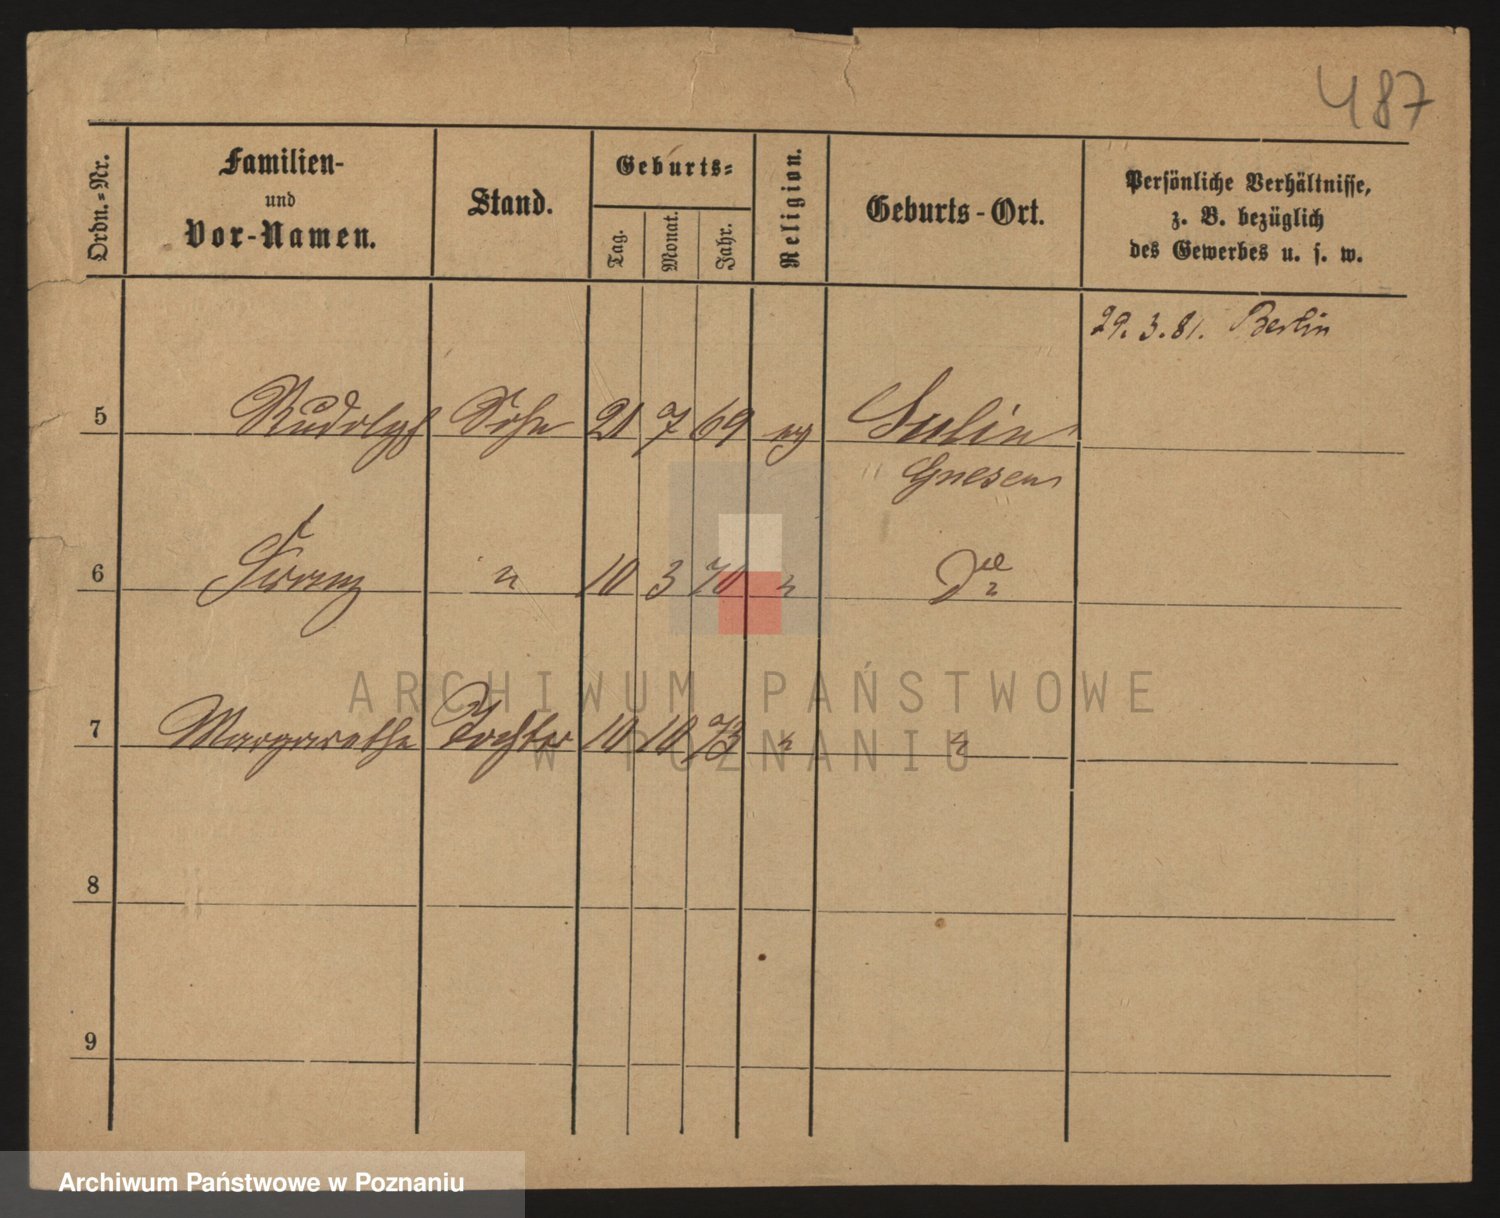 487
Ordn.-Nr.
Familien-
und
Vor-Namen.
Stand.
Geburts-
Tag.
Monat.
Jahr.
Religion.
Geburts-Ort.
Persönliche Verhältnisse,
z. B. bezüglich
des Gewerbes u. s. w.
29. 3. 81. Berlin
5 Rudolph Sohn 21 7 69 ev Sulin
Gnesen
6 Franz " 10 3 70 "
7 Margarethe Tochter 10 10 73 " "
8
9
ARCHIWUM PAŃSTWOWE
W POZNANIU
Archiwum Państwowe w Poznaniu